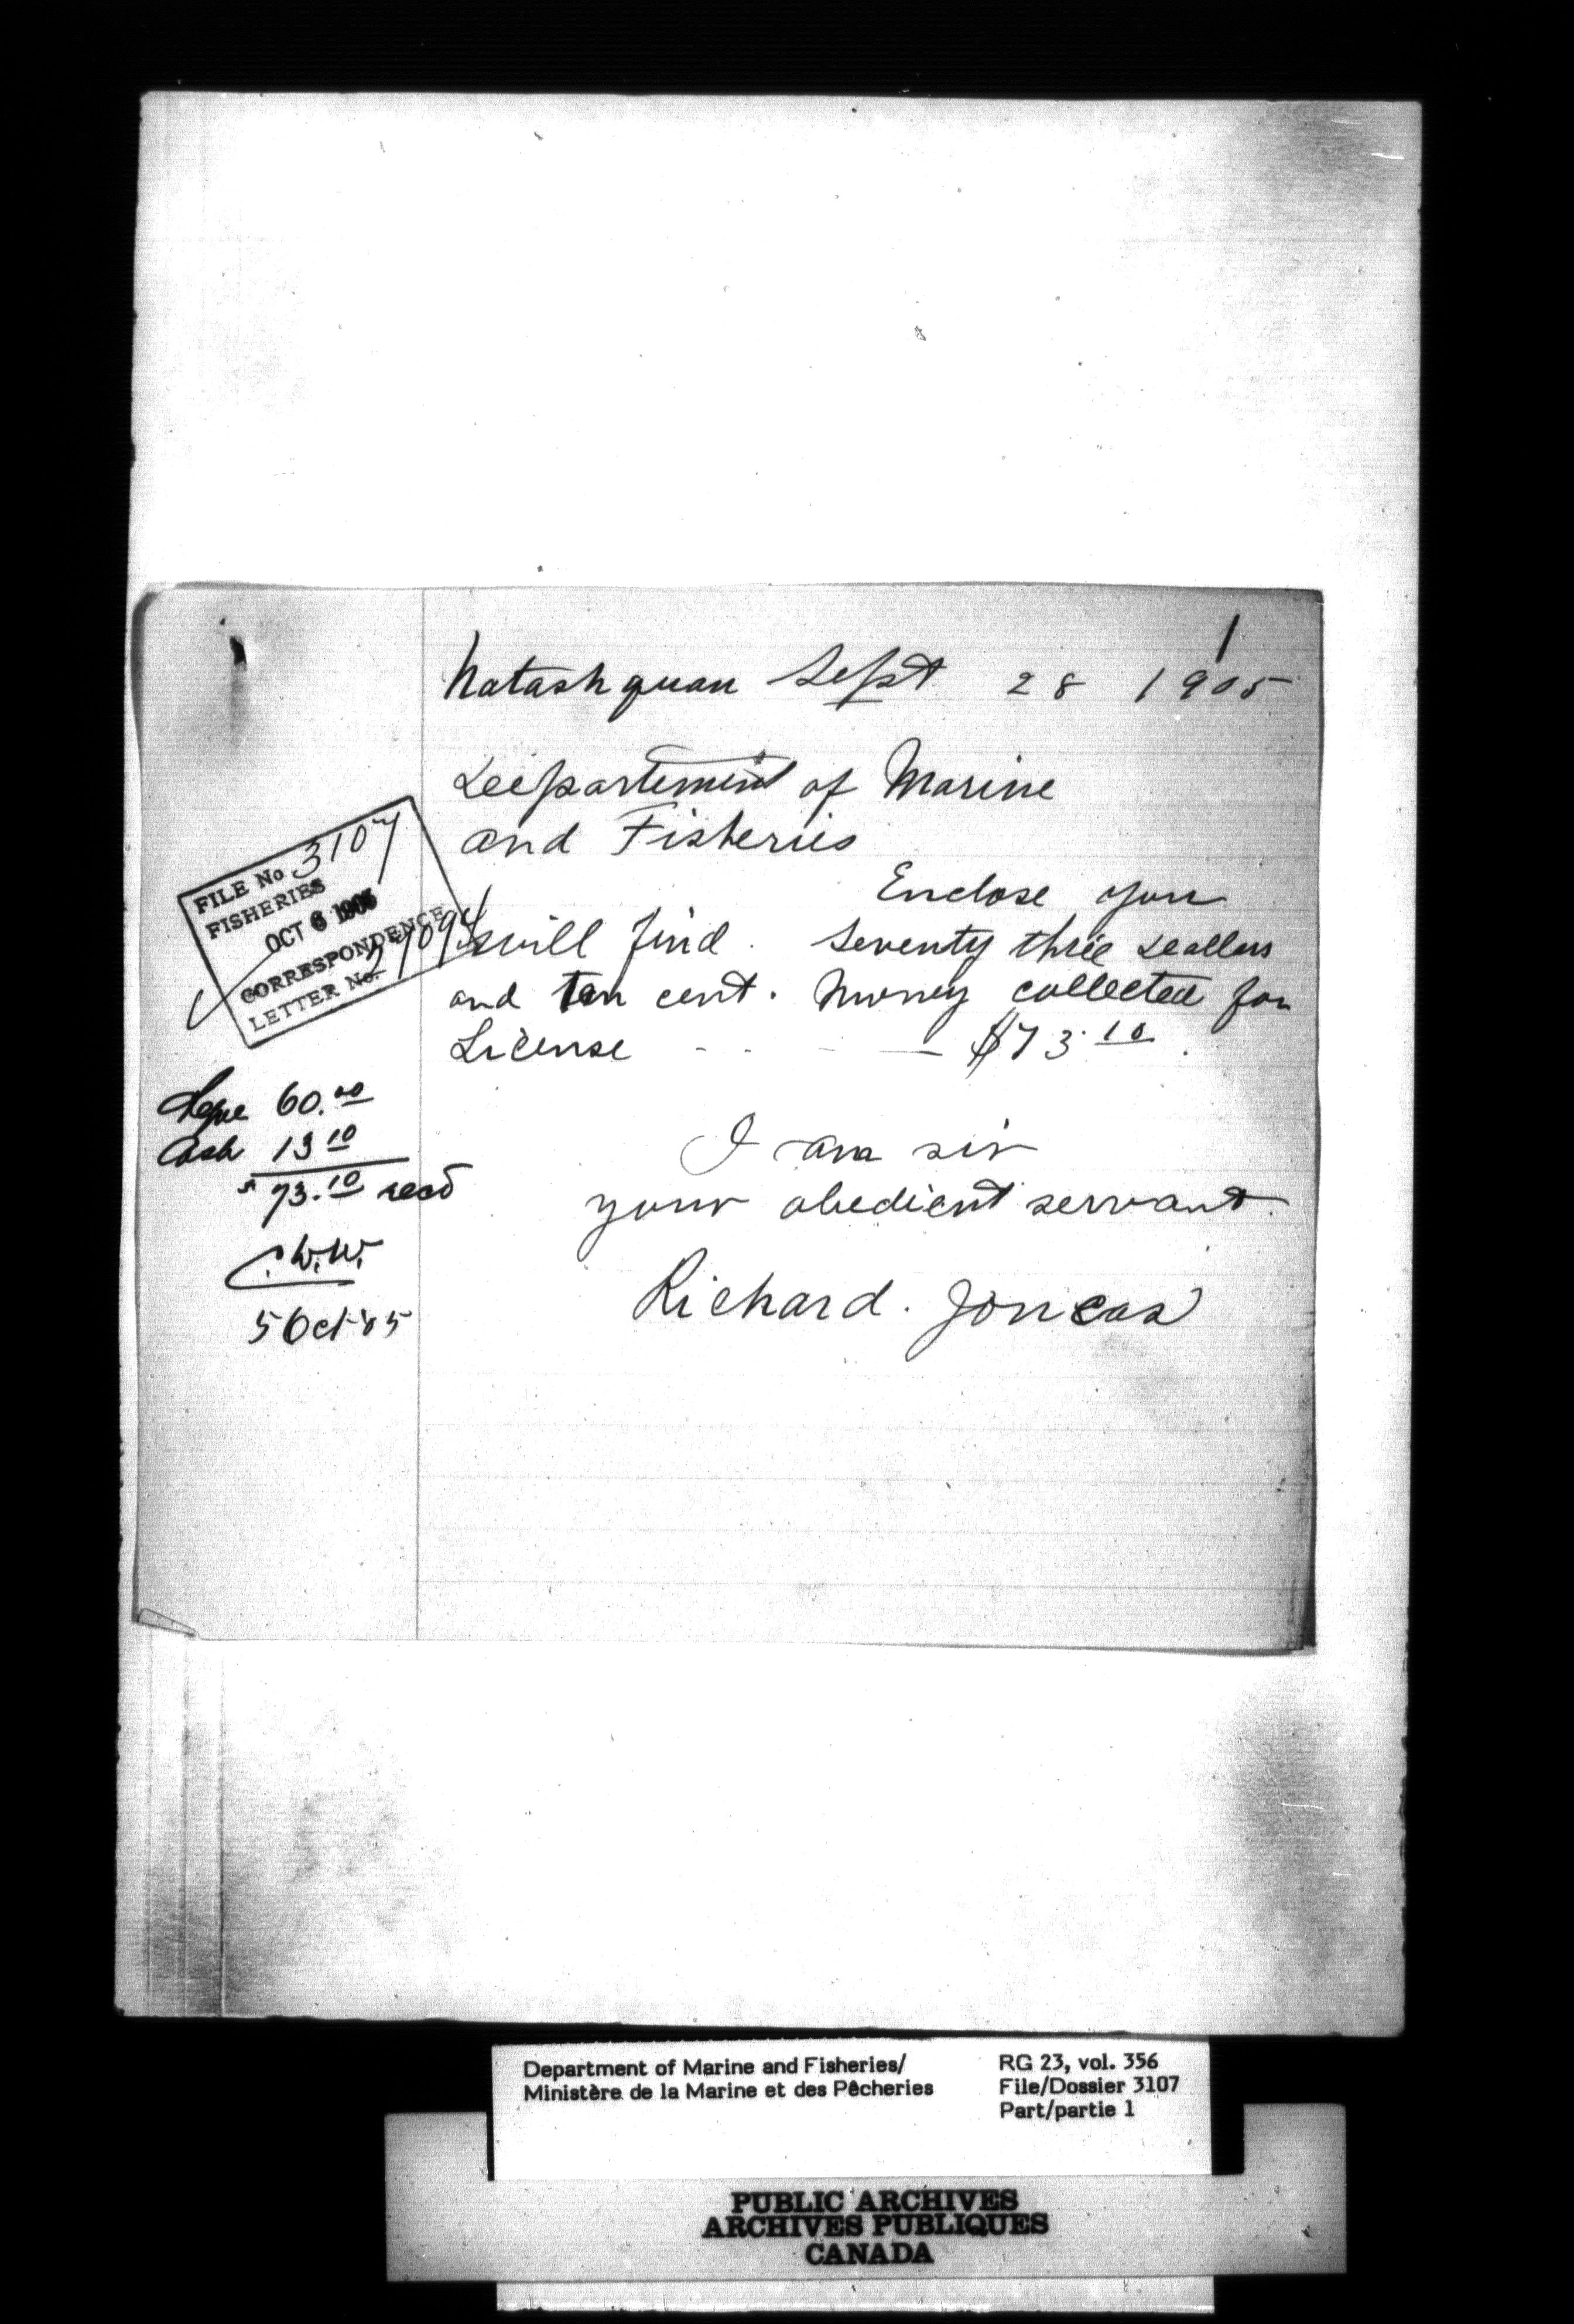 1
Natashquan Sept 28 1905
Deepartement of Marine
and Fisheries
Enclose you
will find. Seventy three Deallers
and ten cent. Money collected for
License - - - — $73 10.
I am sir
your obedient servant.
Richard. Joncas
FILE No 3107
FISHERIES
OCT 6 1905
CORRESPONDENCE
LETTER No.
60.00
Cash 13 10
$73.10 recd
C.W.W.
5 Oct 05
Department of Marine and Fisheries/
Ministère de la Marine et des Pêcheries
RG 23, vol. 356
File/Dossier 3107
Part/partie 1
PUBLIC ARCHIVES
ARCHIVES PUBLIQUES
CANADA